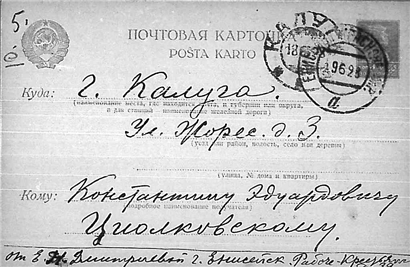 10. 5.
ПОЧТОВАЯ КАРТОЧКА
POŜTA KARTO
КАЛУГА
18.6.28
9 6 28
Куда: г. Калуга.
(наименование места, где находится почта, и губернии или округа,
а для станций — наименование железной дороги)
Ул. Жорес. д. 3
(село или район, волость, село или деревня)
(улица, № дома и квартиры)
Кому: Константину Эдуардовичу
подробное наименование получателя)
Циолковскому
от Е. Н. Дмитриевой г. Енисейск.